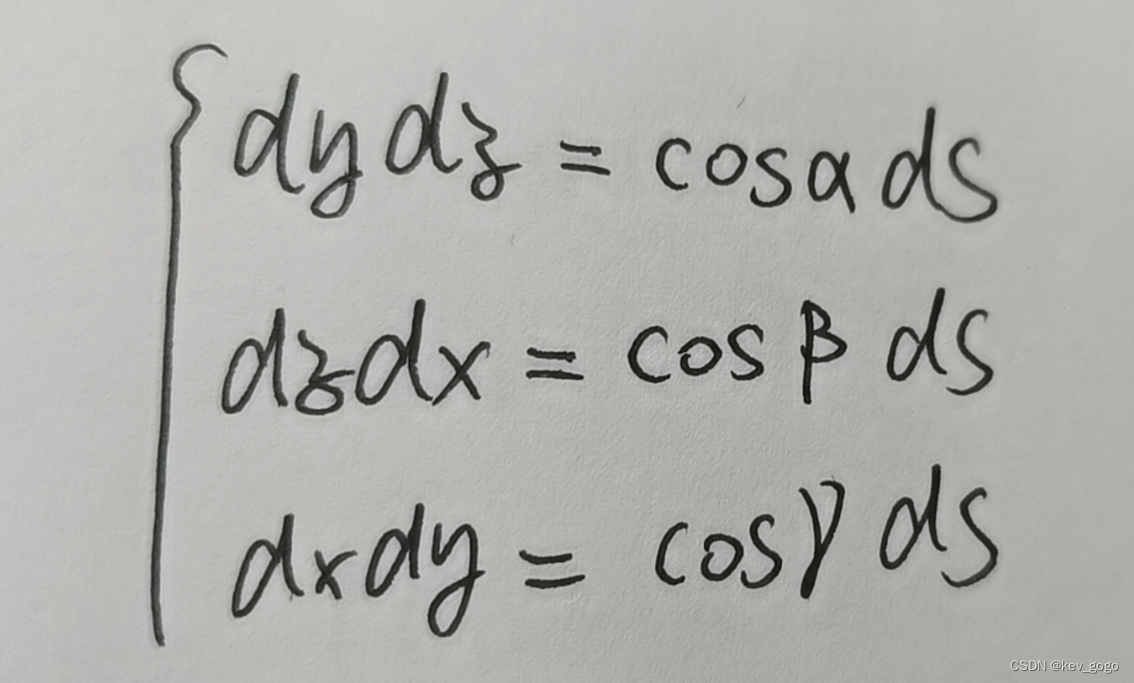 dy dz = cos α ds
dz dx = cos β ds
dx dy = cos γ ds
CSDN @kev_gogo